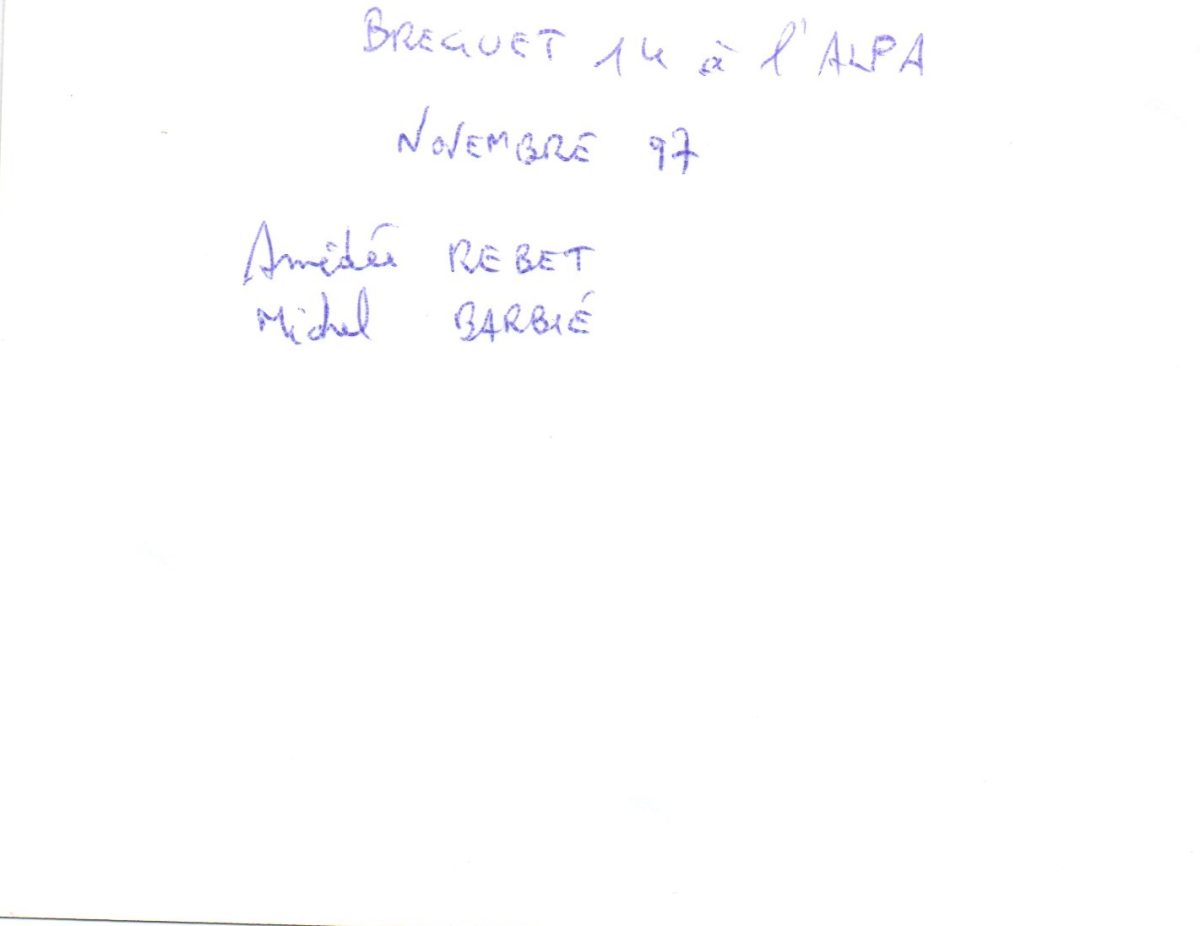 BREGUET 14 à l'ALPA
NOVEMBRE 97
Amédée REBET
Michel BARBIÉ